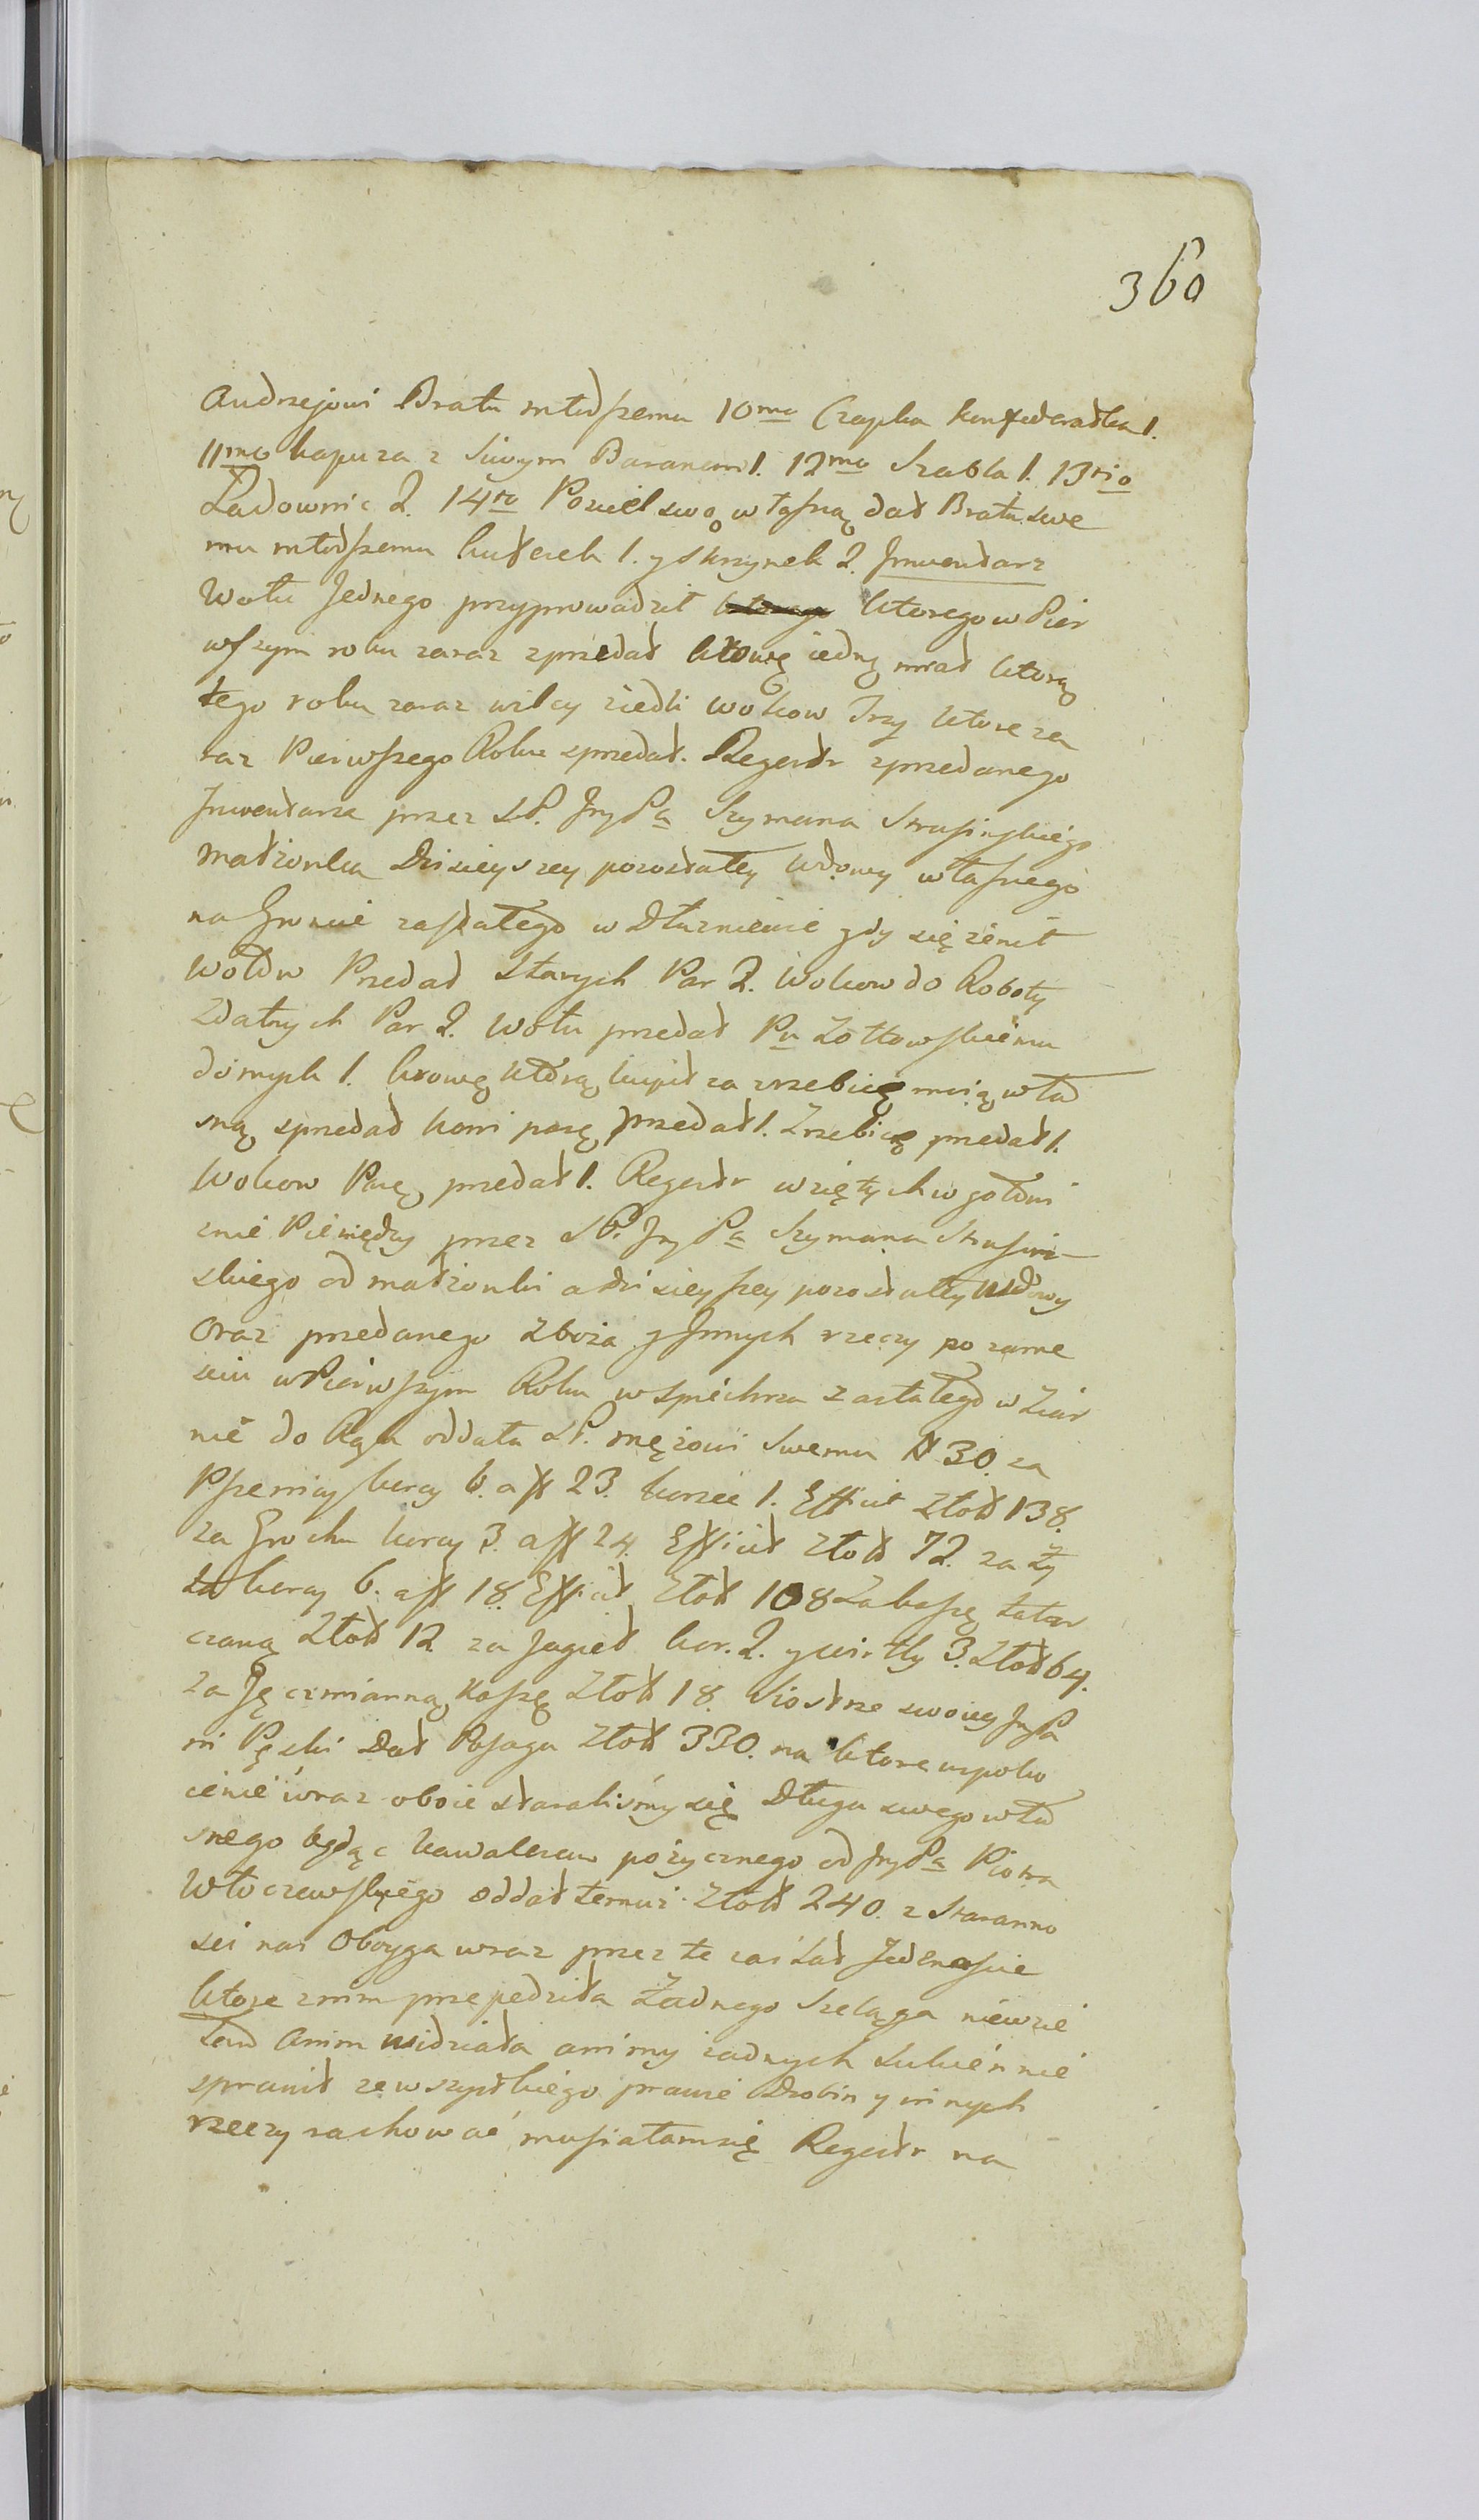 360
Andrzejowi Bratu młodszemu 10mo Czapka konfederadka 1.
11mo kapuza z Siwym Baranem 1. 12mo Szabla 1. 13tio
Ładownic 2. 14to Posciel swoę własną dał Bratu swe
mu młodszemu kuferek 1. y skrzynek 2. Inwentarz
Wołu Jednego przyprowadził którego w Pier
wszym roku zaraz zprzedał krowę iedną miał którą
tego roku zaraz wilcy ziedli wołkow Trzy które za
raz Pierwszego Roku sprzedał. Regestr zprzedanego
Inwentarza przez SP. Jmp Pa Szymana
małżonka Dzisieyszey pozostałey Wdowy własnego
na Groncie zastałego w Dłużniewie gdy się żenił
wołow Przedał Starych Par 2. wołkow do Roboty
Zdatnych Par 2. wołu przedał Pu Żołtowskiemu
dornych 1. krowę którą kupił za zrzebię moią wła
sną sprzedał koni parę przedał 1. Zrzebię przedał 1.
Wołkow Parę przedał 1. Regestr wziętych w gotowi
znie Pieniędzy przez SP. Jmp Pa Szymana
skiego od małżonki a dzisieyszey pozostałey wdowy
oraz przedanego Zboża y Innych rzeczy po zame
sciu w Pierwszym Roku w spichrzu zastałego w Ziar
nie do Rąk oddała SP. mężowi Swemu # 30. za
Pszenicy korcy 6. a fl 23. korzec 1. Efficit Złott 138.
za Grochu korcy 3. a fl 24. Efficit złott 72. za Ży
ta korcy 6. a fl 18. Efficit Złott 108 Za kaszę tatar
czaną Złott 12 za Jagieł kor. 2. y cwirtly 3. Złott 64.
za Ięczmianną kaszę Złott 18. Siostrze swoiey JmPa
ni Pęski Dał Posagu Złott 330. na które uspoko
ienie wraz oboie staralismy się Długu swego wła
snego będąc kawalerem pożycznego od JmPa Piotra
Włoczewskiego oddał temuż Złott 240. z Staranno
sci nas Oboyga wraz przez te zas Lat Jedenascie
które znim przepedziła Żadnego Szeląga niewzie
łam Anim widziała ani my żadnych Sukień nie
sprawił ze wszystkiego prawie Drobin y innych
rzeczy rachować musiałam się Regestr na